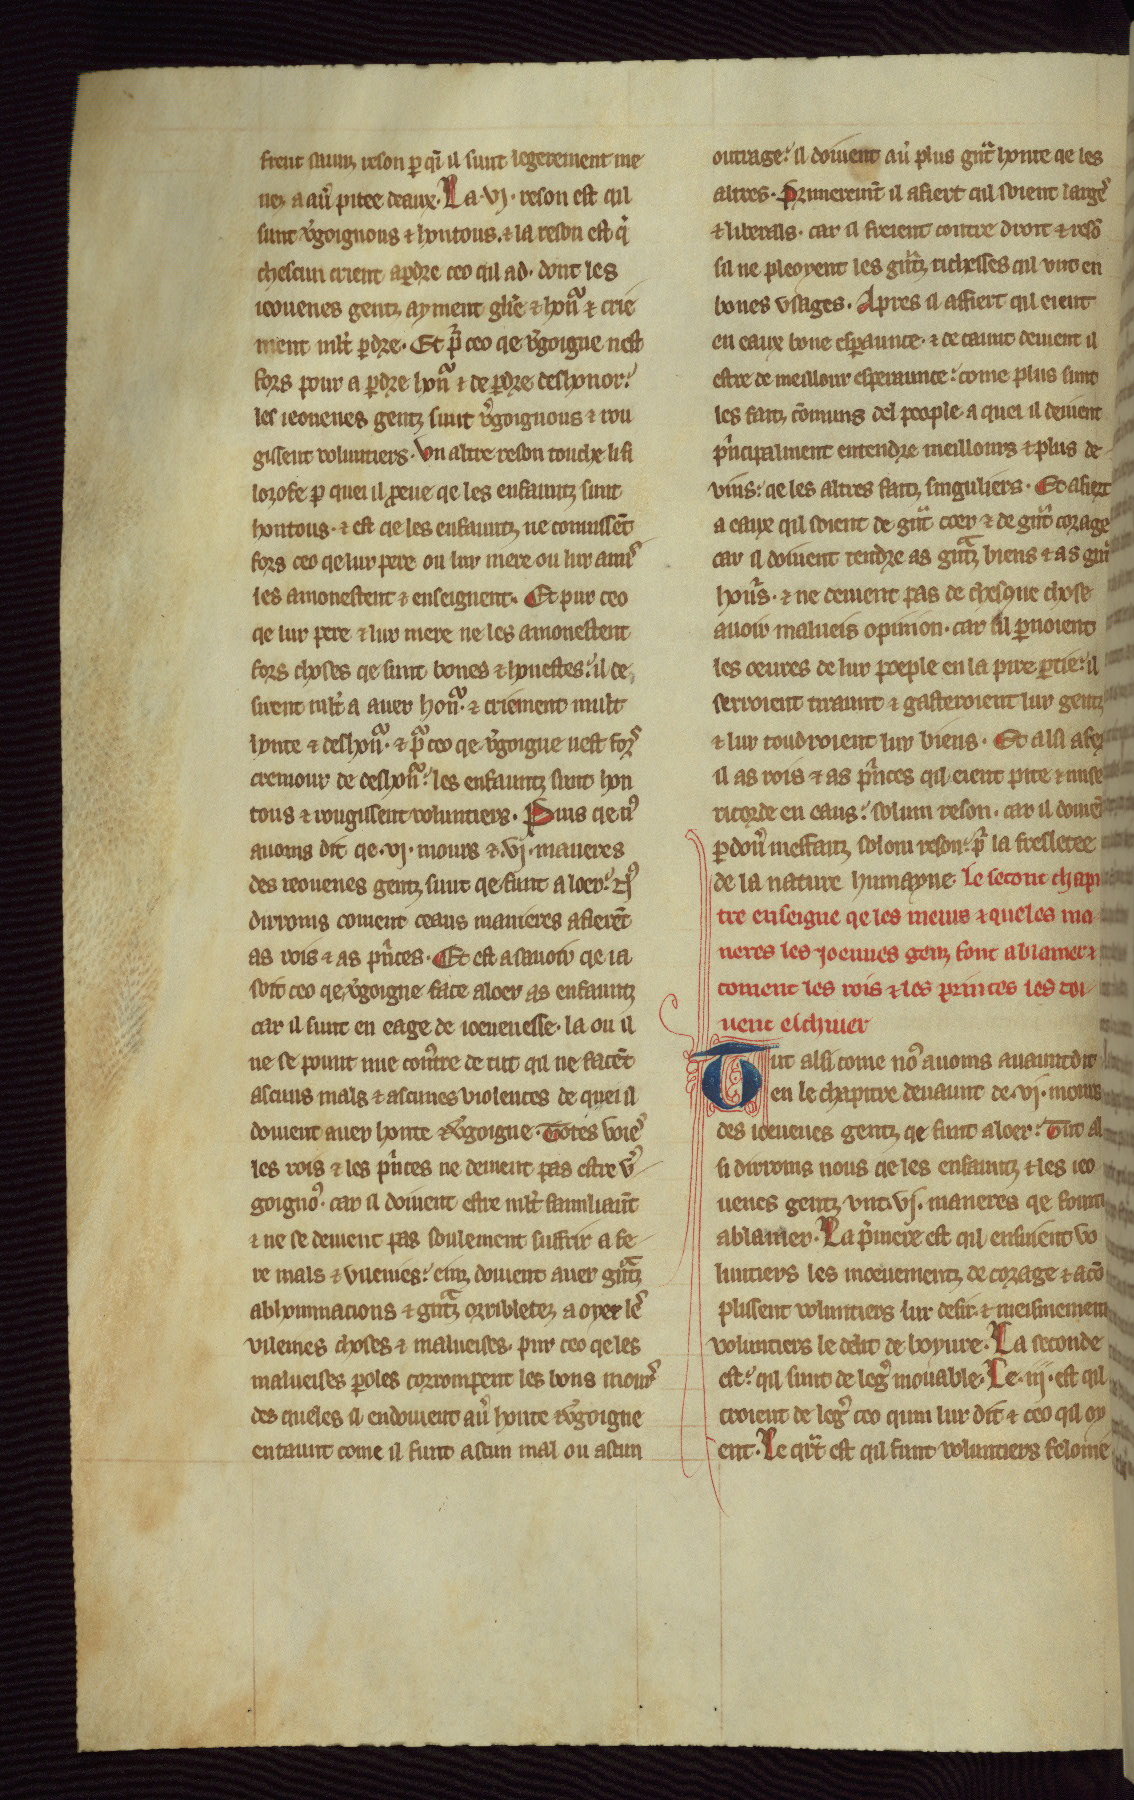 frent saunz reson p̲ q̇i il sunt legerement me
nez a au᷑ pitee deaux. La .vj. reson est qil
sunt v᷑goignous ⁊ hontous. ⁊ la reson est q̇
chescun crient ap̲dre ceo qil ad. dont les
ieouenes gentz ayment gl̄ie ⁊ hon᷑ ⁊ crie
ment ml̄t p̲dre. Et p᷑ ceo qe v᷑goigne nest
fors pour a p̲dre hon᷑ ⁊ de p̲dre deshonor.
les ieouenes gentz sunt v᷑goignous ⁊ rou
gissent voluntiers. Un altre reson touche li fi
lozofe p̲ quei il ꝓeue qe les enfauntz sunt
hontous. ⁊ est qe les enfauntz ne conussēt
fors ceo qe lur pere ou lur mere ou lur amis
les amonestent ⁊ enseignent. Et pur ceo
qe lur pere ⁊ lur mere ne les amonestent
fors choses qe sunt bones ⁊ honestes. il de
sirent ml̄t a auer hon᷑. ⁊ criement mult
honte ⁊ deshon᷑. ⁊ p᷑ ceo qe v᷑goigne nest fors
cremour de deshon᷑. les enfauntz sunt hon
tous ⁊ rougissent voluntiers. Puis qe nꝰ
auoms dit qe .vj. mours ⁊ .vj. maneres
des ieouenes gentz sunt qe funt a loer. nꝰ
dirroms coment ceaus manieres afierēt
as rois ⁊ as p̓nces. Et est a sauoir qe ia
soit ceo qe v᷑goigne face a loer as enfauntz
car il sunt en eage de ioeuenesse. la ou il
ne se point mie cont̓re de tut qil ne facēt
ascuns mals ⁊ ascunes violences de quei il
doiuent auer honte ⁊ v᷑goigne. Totes voies
les rois ⁊ les p̓nces ne deiuent pas estre v᷑
goignoꝰ. car il doiuent estre ml̄t familiaūt
⁊ ne se deiuent pas soulement suffrir a fe
re mals ⁊ vileines. einz doiuent auer g̃ntz
abhominacions ⁊ g̃ntz orribletez a oyer les
vileines choses ⁊ malueises. pur ceo qe les
malueises p̲oles corrompent les bons mours
des queles il en doiuent au᷑ honte ⁊ v᷑goigne
en taunt come il funt ascun mal ou ascun
outrage. il doiuent au᷑ plus g̃nt honte qe les
altres. Primeremēt il afiert qil soient larges
⁊ liberals. car il freient contre droit ⁊ resō
sil ne pleoyent les g̃ntz richesses qil vnt en
bones vsages. Apres il affiert qil eient
en eaux bone esp̲aunce. ⁊ de taunt deiuent il
estre de meillour esperaunce. come plus sunt
les faitz cōmuns del people a quei il deiuent
p̓ncipalment entendre meillours ⁊ plus de
vins. qe les altres faitz singuliers. Et afiert
a eaux qil soient de g̃nt coer ⁊ de g̃nt corage
car il doiuent tendre as g̃ntz biens ⁊ as g̃nt
hon᷑s. ⁊ ne deiuent pas de chesque chose
auoir malueis opinion. car sil p̲noient
les oeures de lur poeple en la pire p̲tie. il
serroient tiraunt ⁊ gasteroient lur gentz
⁊ lur toudroient lur biens. Et alsi afier
il as rois ⁊ as p̓nces qil eient pite ⁊ mise
ricorde en eaus. solum reson. car il doiuēt
p̲don᷑ meffaitz solom reson. p᷑ la fresletee
de la nature humayne. Le secont chapi
tre enseigne qe les meurs ⁊ queles ma
neres les joeunes genz font a blamer ⁊
coment les rois ⁊ les princes les doi
uent eschiuer
Tut alsi come noꝰ auoms auaunt dit
en le chapitre deuaunt de .vj. mours
des ioeuenes gentz qe funt a loer. Tut al
si dirroms nous qe les enfauntz ⁊ les ieo
uenes gentz vnt .vj. maneres qe fount
a blamer. La p̓mere est qil ensuient vo
luntiers les moeuementz de corage ⁊ acō
plissent voluntiers lur desir. ⁊ meismement
voluntiers le delit de boyure. La seconde
est. qil sunt de leg᷑ mouable. Le .iij. est qil
croient de leg᷑ ceo qum lur dit ⁊ ceo qil oy
ent. Le q̃rt est qil funt voluntiers felonie